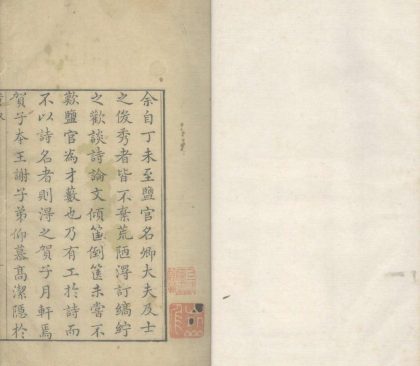 余自丁未至鹽官名卿大夫及士
之俊秀者皆不棄荒陋得訂縞紵
之歡談詩論文傾筐倒篋未嘗不
歎鹽官為才藪也乃有工於詩而
不以詩名者則得之賀子月軒焉
賀子本王謝子弟仰慕高潔隱於